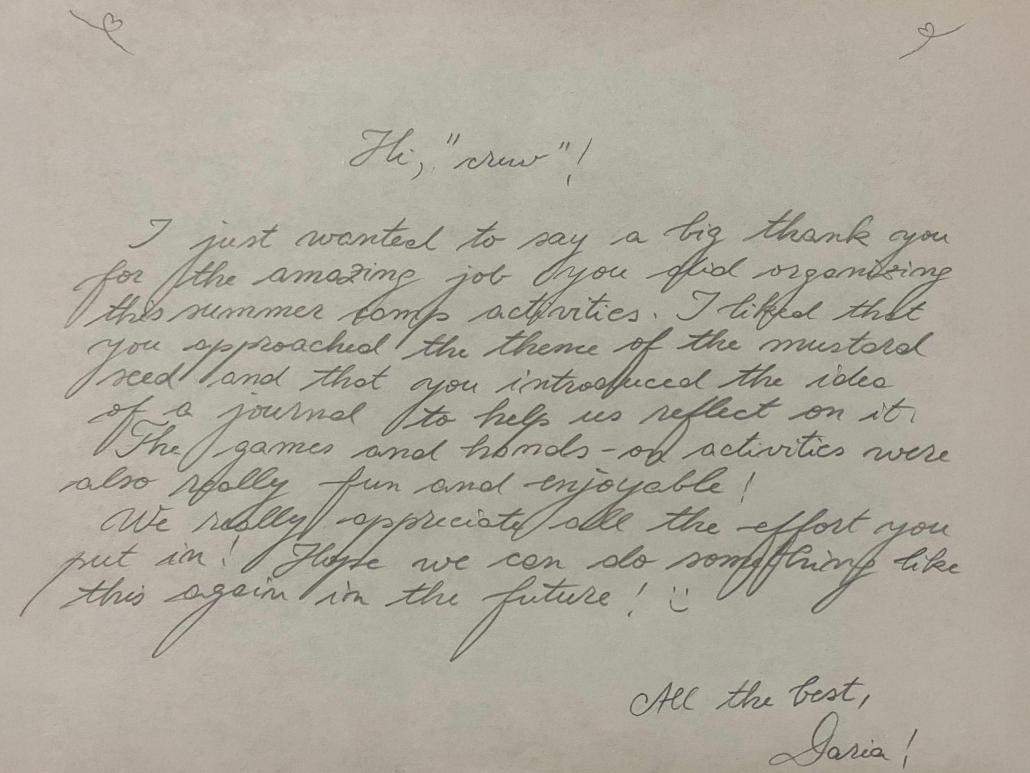 Hi, "crew"!
I just wanted to say a big thank you
for the amazing job you did organizing
this summer camp activities. I liked that
you approached the theme of the mustard
seed and that you introduced the idea
of a journal to help us reflect on it.
The games and hands-on activities were
also really fun and enjoyable!
We really appreciate all the effort you
put in! Hope we can do something like
this again in the future! :)
All the best,
Daria!